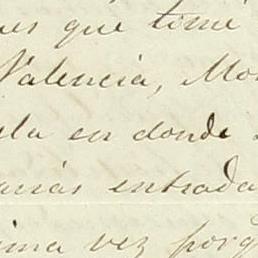 es que tomé
Valencia, Mo
la en donde
arias entrada
ima vez porq